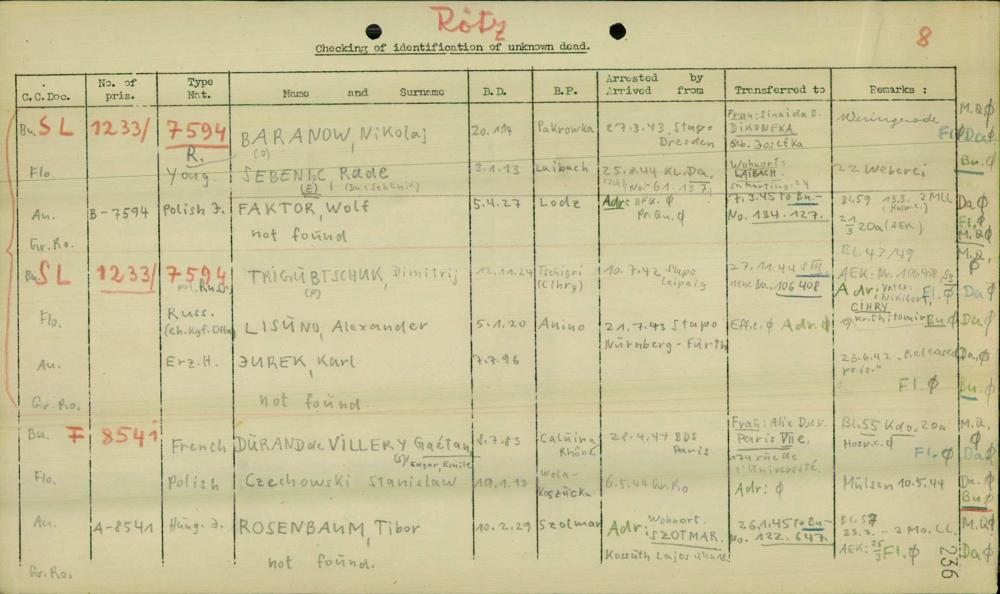 Rötz
8
Checking of identification of unknown dead.
C.C.Doc. No. of pris. Type Nat. Name and Surname B.D. B.P. Arrested by Arrived from Transferred to Remarks :
Bu. SL 1233/ 7594 R. BARANOW, Nikolaj 20. Pakrowka 27.3.43 Stapo Dresden Frau: Sinaida D. geb. M.Q φ
Wernigerode Da φ
Flo. Youg. SEBENIC Rade (E) 3.1.13 Laibach 25.8.44 KL.Da. No.-61.137. Wohnort: LAIBACH 22 Weberei Bu. φ
Au. B-7594 Polish J. FAKTOR, Wolf 5.4.27 Lodz Adr: φ 7.3.45 to Bu.- No. 134.127. Bl.59 13.3. 20a (AEK) Da φ
Gr.Ro. not found Fl. φ M.Q φ
Bu. SL 1233/ 7594 TRIGUBTSCHUK, Dimitrij 12.11.24 Tschigri (Cihry) 10.7.42 Stapo Leipzig 27.11.44 S III neue No. 106408 Bl.47/49 M.Q. φ
AEK: Nr. 106408
Adr: Vater: Nikifor, CIHRY Fl. φ Da φ
Flo. Russ. LISUNO, Alexander 5.1.20 Anino 21.7.43 Stapo Nürnberg-Fürth Eff.c. φ Adr. φ Kr. Shitomir Bu φ Da φ
Au. Erz.H. JUREK, Karl 7.7.96 23.6.42 "Released Da. φ
Fl. φ Bu. φ
Gr.Ro. not found.
Bu. F 8541 French DURAND de VILLERY Gaétan, Edgar, Emile 8.7.83 Rhône 28.4.44 BDS Paris Paris VII e, 174 rue de l'Université. Bl.55 Kdo. 20a Hosp.c. φ M.Q. φ
Fl. φ Da φ
Flo. Polish Czechowski Stanislaw 19.1.13 Wola- 6.5.44 Gr.Ro. Adr: φ Mülsen 10.5.44 Da. φ Bu φ
Au. A-8541 Hung. J. ROSENBAUM, Tibor 10.2.29 Szolmar Adr: Wohnort. SZOTMAR. Kossuth Lajos 26.1.45 to Bu.- No. 122.647. Bl.57 M.Q. φ
AEK: Fl. φ Da φ
Gr.Ro. not found.
236